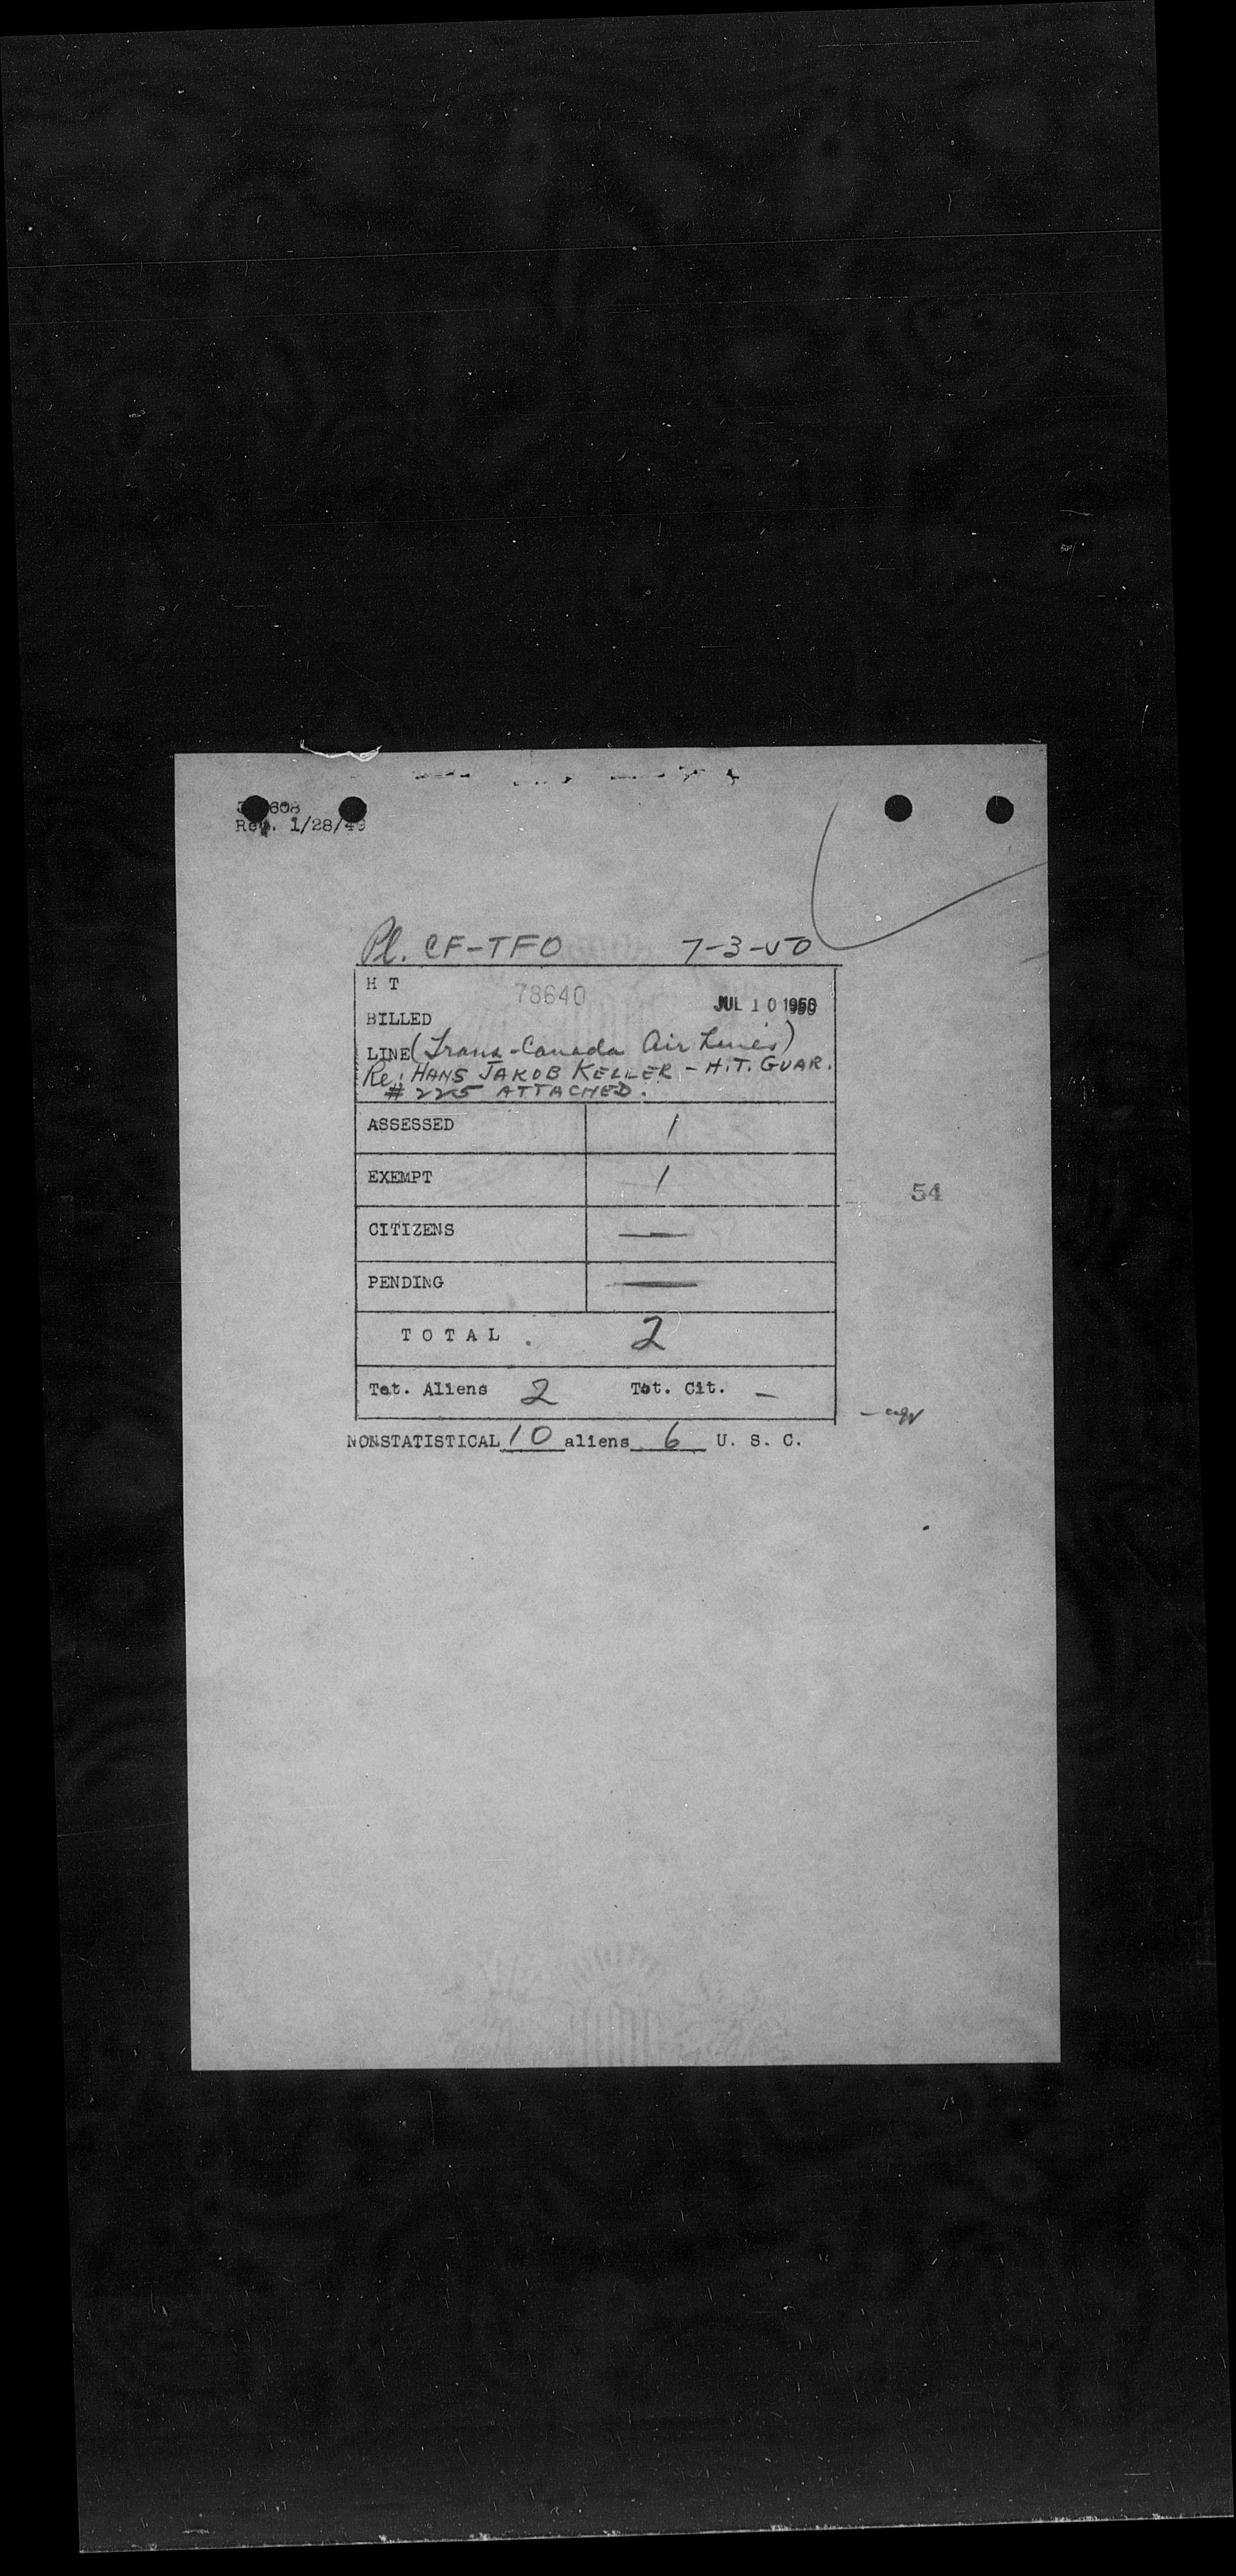 608
Rev. 1/28/49
Pl. CF-TFO 7-3-50
H T
78640
JUL 10 1950
BILLED
LINE (Trans-Canada Air Lines)
Re: HANS JAKOB KELLER - H.T. GUAR.
# 225 ATTACHED.
ASSESSED 1
EXEMPT 1
54
CITIZENS —
PENDING —
TOTAL 2
Tot. Aliens 2 Tot. Cit. -
NONSTATISTICAL 10 aliens 6 U. S. C.